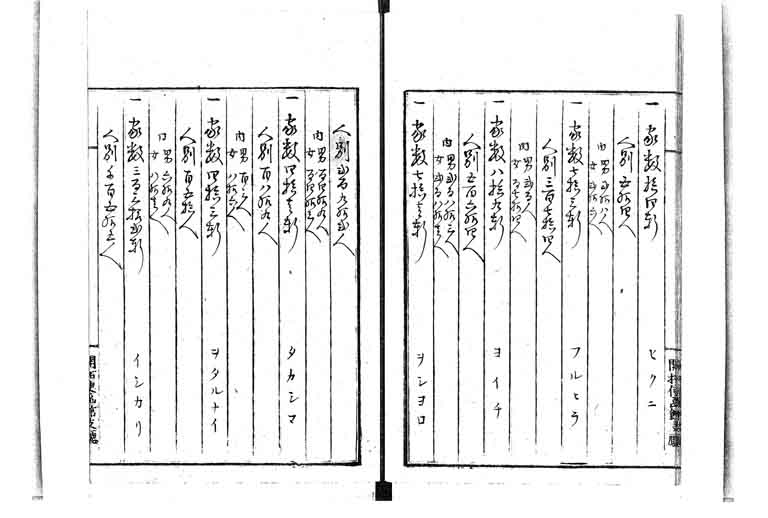 一 家数拾四軒 ヒクニ
人別五拾四人
内 男弐拾八人
女弐拾六人
一 家数七拾三軒 フルヒラ
人別三百七拾四人
内 男弐百人
女百七拾四人
一 家数八拾九軒 ヨイチ
人別五百六拾四人
内 男弐百八拾三人
女弐百八拾壱人
一 家数七拾壱軒 ヲシヨロ
人別弐百九拾弐人
内 男百四拾九人
女百四拾三人
一 家数四拾壱軒 タカシマ
人別百八拾九人
内 男百三人
女八拾六人
一 家数四拾三軒 ヲタルナイ
人別百五拾人
内 男六拾九人
女八拾壱人
一 家数三百六拾弐軒 イシカリ
人別千百五拾三人